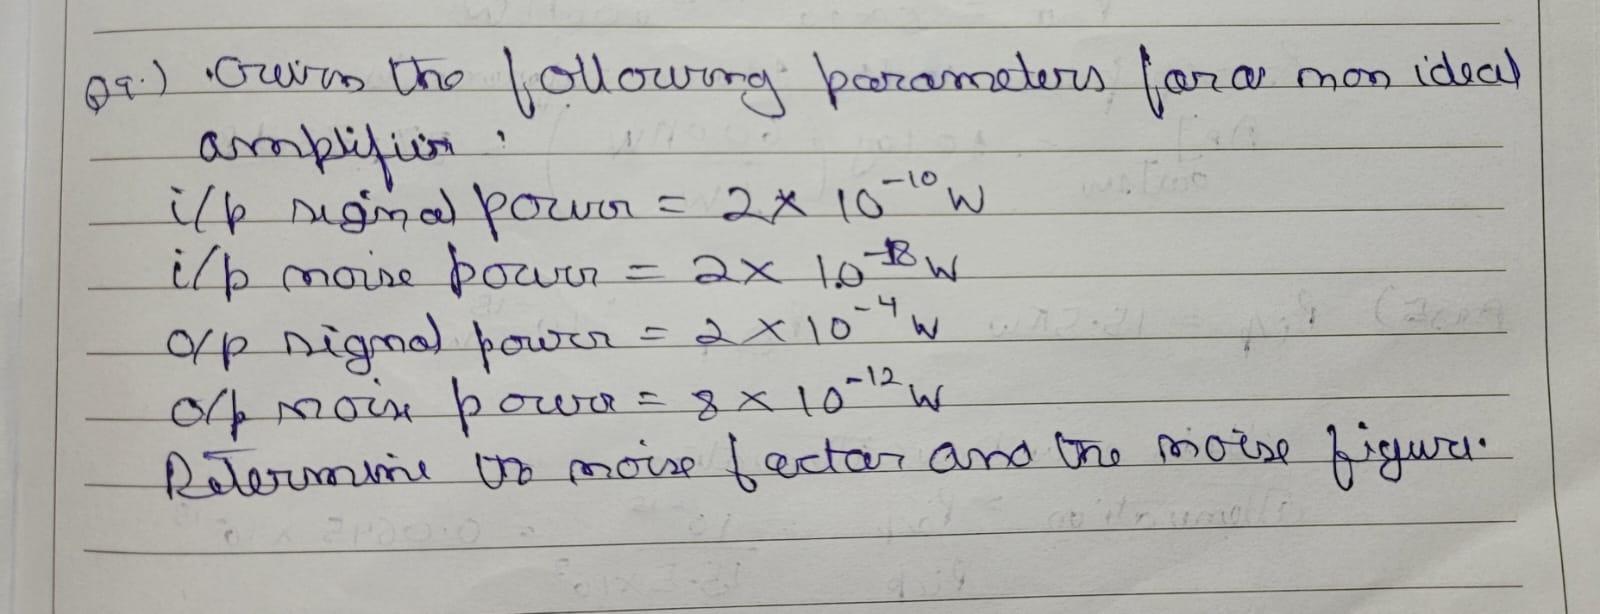 Q9.) Given the following parameters for a non ideal
amplifier :
i/p signal power = 2 × 10⁻¹⁰ W
i/p noise power = 2 × 10⁻¹⁸ W
o/p signal power = 2 × 10⁻⁴ W
o/p noise power = 8 × 10⁻¹² W
Determine the noise factor and the noise figure.